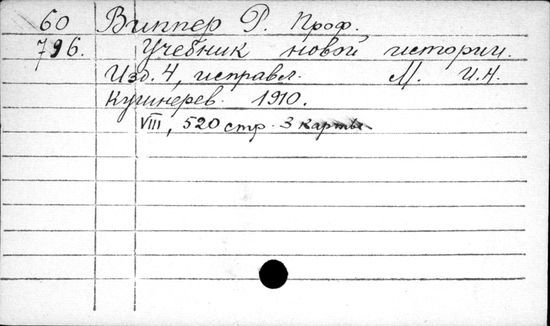 60 Виппер Р. Проф.
796. Учебник новой истории.
Изд. 4, исправл. М. И.Н.
Кушнерев. 1910.
VIII, 520 стр. 3 карты